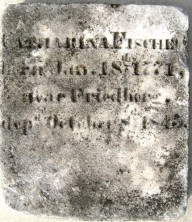 CATHARINA FISCHER
born Jan. 18th 1771,
near Friedberg,
dep.d October